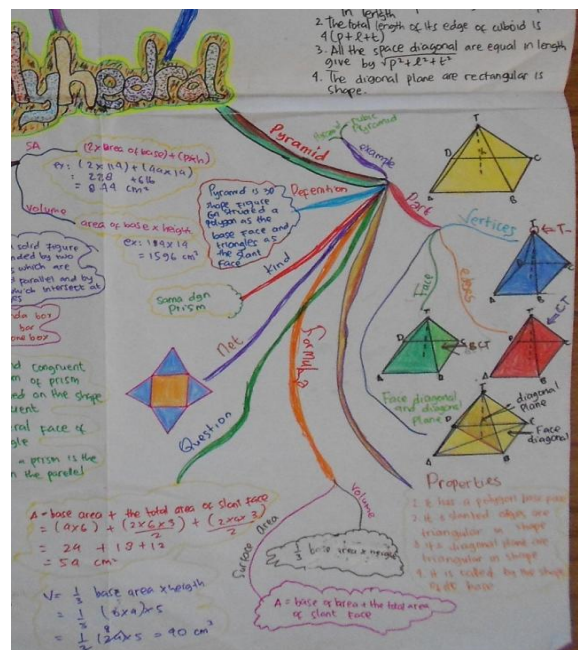 in length
2. The total length of its edge of cuboid is
4(p+l+t)
3. All the space diagonal are equal in length
give by √p²+l²+t²
4. The digonal plane are rectangular is
shape.
lyhedral
SA
(2xarea of base)+(pxh)
ex: (2x114)+(44x14)
= 228 +616
= 844 cm²
Volume
area of base x height
ex: 114x14
= 1596 cm³
solid figure
nded by two
which are
parallel and by
which intersect at
es
nda box
bar
one box
nd congruent
m of prism
ed on the shape
uent
ral face of
gle
a prism is the
n the parallel
Pyramid
example
Pyramid
Deferation
Pyramid is 3D
shape figure
a
polygon as the
base face and
triangles as
the slant
face
kind
sama dgn
prism
Net
Question
Formula
Part
Vertices
T
D
C
A
B
T
Face
edges
T
D
A
B
BCT
T
A
B
CT
Face diagonal
and diagonal
plane
T
diagonal
plane
D
C
Face
diagonal
A
B
Properties
1. It has a polygon base face
2. it slanted edges are
triangular in shape
3. it's diagonal plane are
triangular in shape
4. it is called by the shape
of its base
Surface area
Volume
1/3 base area x height
A = base of area + the total area
of slant face
A = base area + the total area of slant face
= (4x6) + (2x6x3)/2 + (2x4x3)/2
= 24 + 18+12
= 54 cm²
V = 1/3 base area x height
= 1/3 (6x4)x5
= 1/3 (24)x5 = 40 cm³